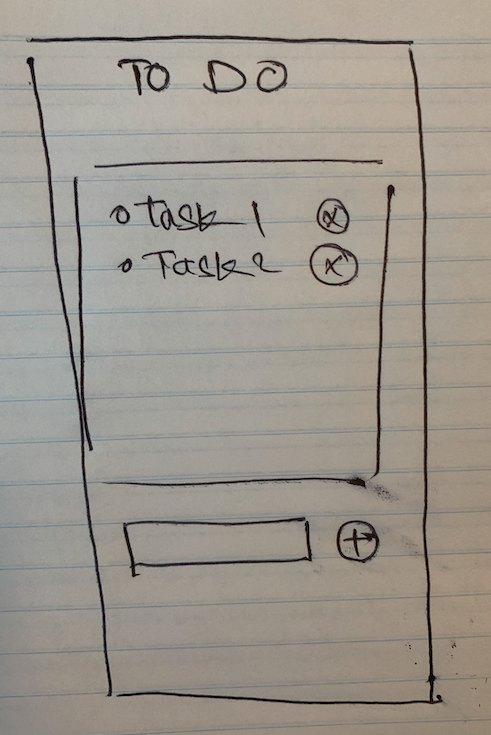 TO DO
Task 1 x
Task 2 x
+